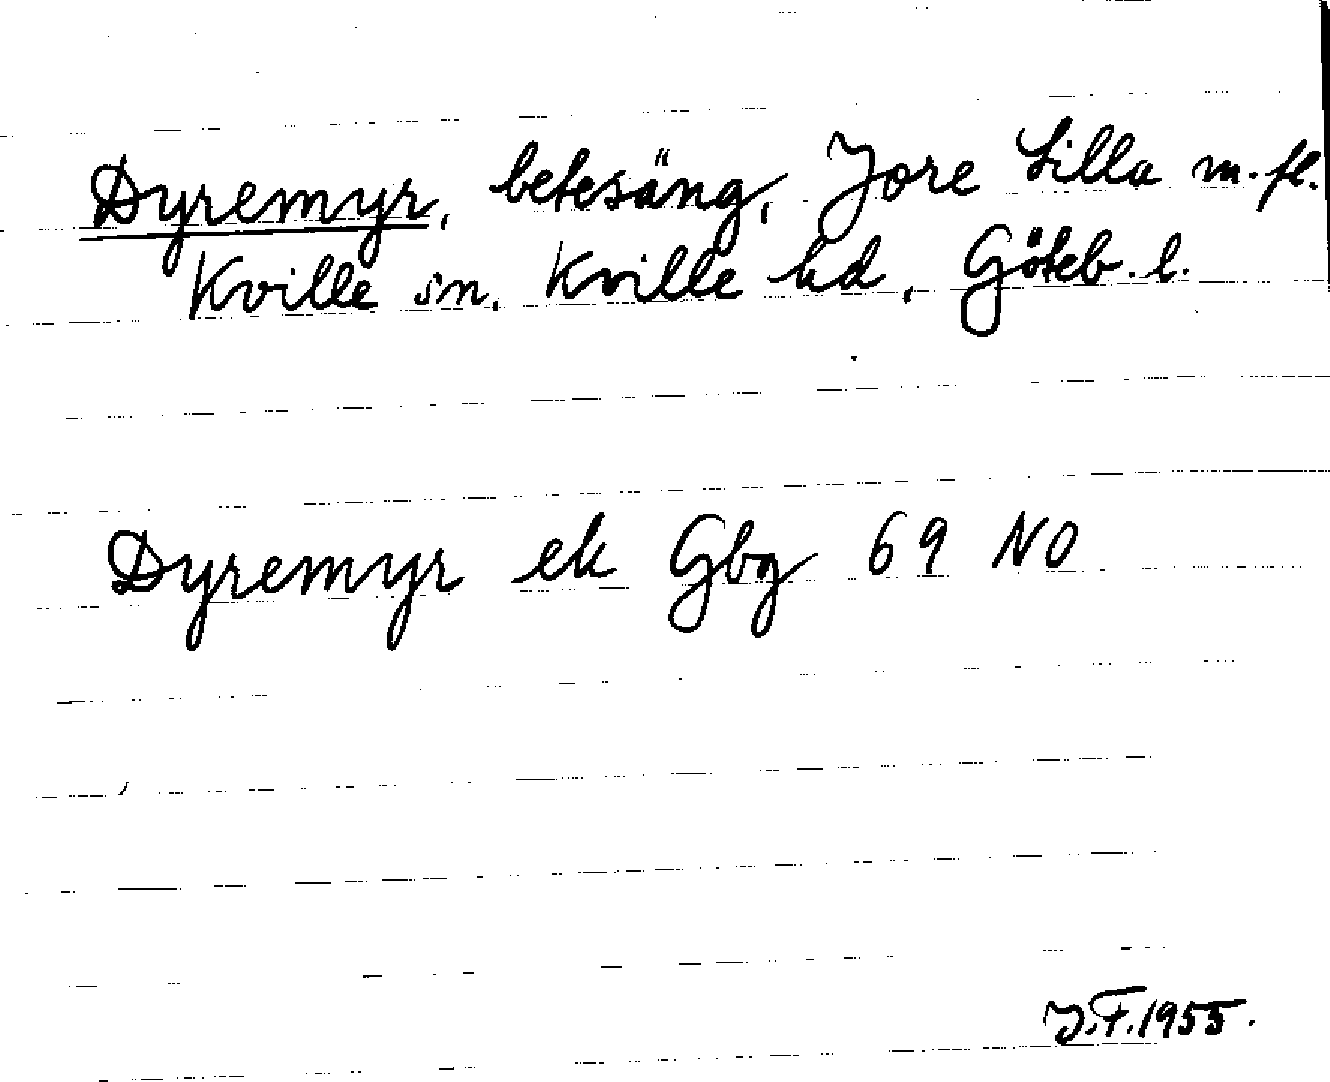 Dyremyr, betesäng, Jore Lilla m.fl.
Kville sn, Kville hd, Göteb. l.
Dyremyr ek Gbg 69 NO
J.F. 1955.